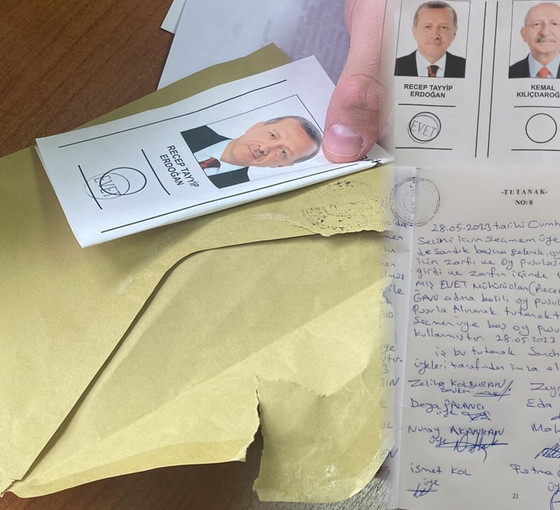 RECEP TAYYİP
ERDOĞAN
EVET
RECEP TAYYİP
ERDOĞAN
EVET
KEMAL
KILIÇDAROĞ
-TUTANAK-
NO: 8
28.05.2023 tarihi Cumh
Seçimi için seçmen üye
ve sandık başına gelerek, oy
için zarfı ve oy pusulası
girdi ve zarfın içinde
mış EVET mühürlü olan (Recep
adına basılı oy pusul
Pusula Alınarak tutanak t
Seçmen üye boş oy pusu
kullanmıştır. 28.05.2023
iş bu tutanak Sandı
üyeleri tarafından imza al
Zeliha KOLBURAN
Zey
Derya PALANCI
üye
Eda
Nuray AKANKAN
üye
Mah
İsmet KOL
üye
Fatma
üy
21